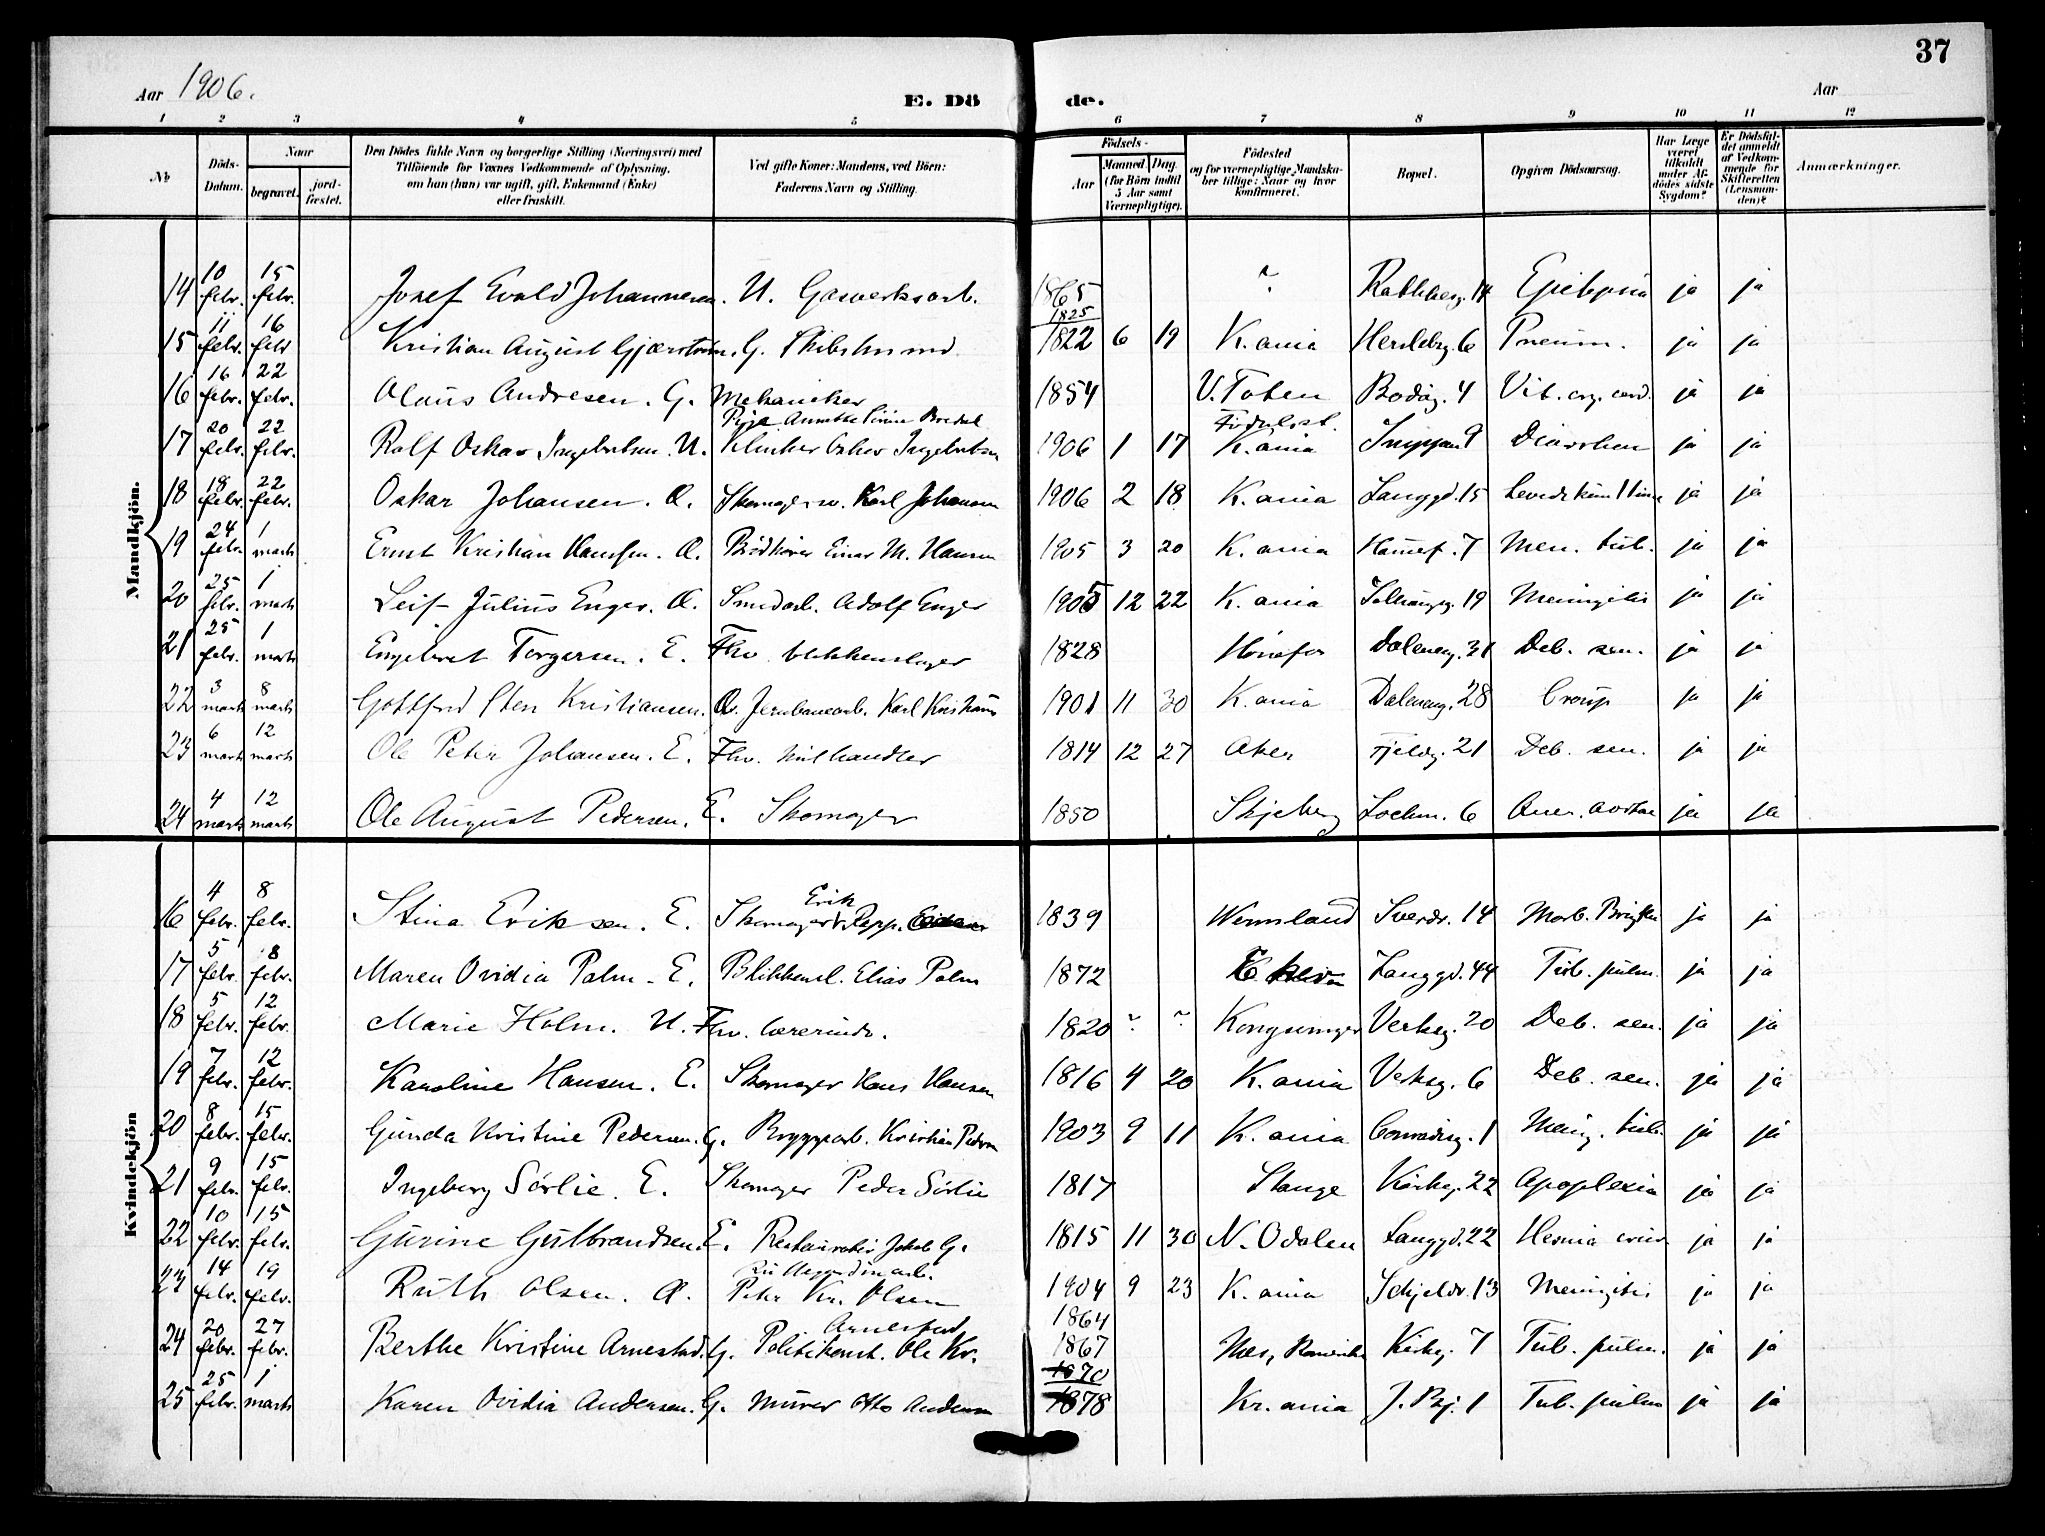 37
Aar 1906.
E. Döde.
Aar
1 2 3 4 5 6 7 8 9 10 11 12
No
Döds-Datum.
Naar
begravet.
jord-fæstet.
Den Dödes fulde Navn og borgerlige Stilling (Næringsvei) med Tilföiende for Voxnes Vedkommende af Oplysning, om han (hun) var ugift, gift, Enkemand (Enke) eller fraskilt.
Ved gifte Koner: Mandens, ved Börn: Faderens Navn og Stilling.
Födsels-
Aar
Maaned. Dag.
(for Börn indtil 5 Aar samt Værnepligtige).
Födested og for værnepligtige Mandskaber tillige: Naar og hvor konfirmeret.
Bopæl.
Opgiven Dödsaarsag.
Har Læge været tilkaldt under Afdödes sidste Sygdom?
Er Dödsfaldet anmeldt af Vedkommende for Skifteretten (Lensmanden)?
Anmærkninger.
Mandkjön.
14 10 febr. 15 febr. Josef Evald Johannesen. U. Gasverksarb. 1865 ? Rathkesg. 14 ja ja
15 11 febr. 16 febr Kristian August Gjerstrøm. G. 1825 1822 6 19 K.ania Herslebg. 6 Pneum. ja ja
16 16 febr. 22 febr. Olaus Andresen. G. Mekaniker 1854 V. Toten Bodøg. 4 Vit. org. cord. ja ja
17 20 febr. 22 febr. Rolf Oskar Ingebretsen. U. Pige Annette Bredal Klinker Oskar Ingebretsen 1906 1 17 Födselsst. K.ania 9 Diarrhea ja ja
18 18 febr. 22 febr. Oskar Johansen. Æ. Skomagersv. Karl Johansen 1906 2 18 K.ania Langgd. 15 Levede kun 1 time ja ja
19 24 febr. 1 marts Ernst Kristian Hansen. Æ. Bödtker Einar M. Hansen 1905 3 20 K.ania 7 Men. tub. ja ja
20 25 febr. 1 marts Leif Julius Enger. Æ. Smedarb. Adolf Enger 1905 12 22 K.ania 19 Meningitis ja ja
21 25 febr. 1 marts Engebret Torgersen. E. Fhv. blikkenslager 1828 Hönefos Daleneng. 31 Deb. sen. ja ja
22 3 marts 8 marts Gottfred Sten Kristiansen. Æ. Jernbanearb. Karl Kristians 1901 11 30 K.ania Daleneng. 28 Croup ja ja
23 6 marts 12 marts Ole Peter Johansen. E. Fhv. hulhandler 1814 12 27 Aker Fjeldg. 21 Deb. sen. ja ja
24 4 marts 12 marts Ole August Pedersen. E. Skomager 1850 Skjeberg 6 Aner. aortae ja ja
Kvindekjön
16 4 febr. 8 febr. Stina Eriksen. E. Skomager Erik 1839 Wermland Sverdr. 14 Morb. Brightii ja ja
17 5 febr. 8 febr. Maren Ovidia Palm. E. Blikkensl. Elias Palm 1872 Langgd. 44 Tub. pulm. ja ja
18 5 febr. 12 febr. Marie Holm. U. Fhv. lærerinde. 1820 ? ? Kongsvinger Verksg. 20 Deb. sen. ja ja
19 7 febr. 12 febr. Karoline Hansen. E. Skomager Hans Hansen 1816 4 20 K.ania Verksg. 6 Deb. sen. ja ja
20 8 febr. 15 febr. Gunda Kristine Pedersen. G. Bryggearb. Kristian Pedersen 1903 9 11 K.ania Conradisg. 1 Mening. tub. ja ja
21 9 febr. 15 febr. Ingeborg Sörlie. E. Skomager Peder Sörlie 1817 Stange Kirkeg. 22 Apoplexia ja ja
22 10 febr. 15 febr. Gurine Gulbrandsen. E. Restauratör Jakob G. 1815 11 30 N. Odalen Langgd. 22 Hernia ja ja
23 14 febr. 19 febr. Ruth Olsen. Æ. Peter Kr. Olsen 1904 9 23 K.ania Schjeldr. 13 Meningitis ja ja
24 20 febr. 27 febr. Berthe Kristine Arnestad. G. Politikonst. Ole Kr. Arnestad 1864 1867 Nes, Romerike Kirkeg. 7 Tub. pulm. ja ja
25 25 febr. 1 marts Karen Ovidia Andersen. G. Murer Otto Andersen 1870 1878 Kr.ania 1 Tub. pulm ja ja